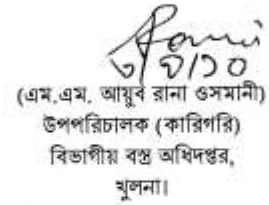 ৩/৭/১০
(এম.এম. আয়ুব রানা ওসমানী)
উপপরিচালক (কারিগরি)
বিভাগীয় বস্ত্র অধিদপ্তর,
খুলনা।